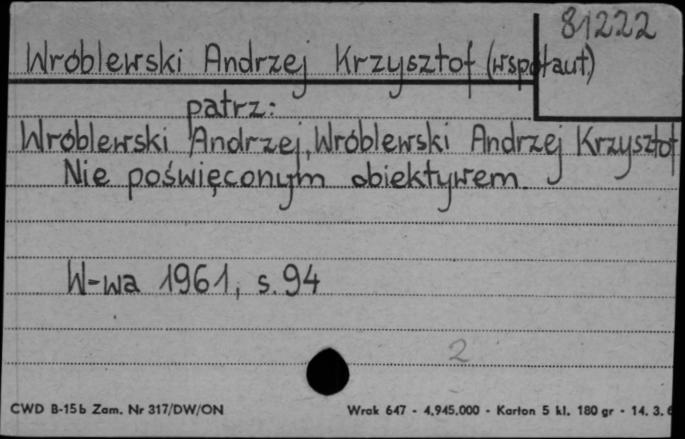 81222
Wróblewski Andrzej Krzysztof (współaut)
patrz:
Wróblewski Andrzej, Wróblewski Andrzej Krzysztof
Nie poświęconym obiektywem.
W-wa 1961, s. 94
2
CWD B-15b Zam. Nr 317/DW/ON Wrak 647 - 4.945.000 - Karton 5 kl. 180 gr - 14. 3. 6